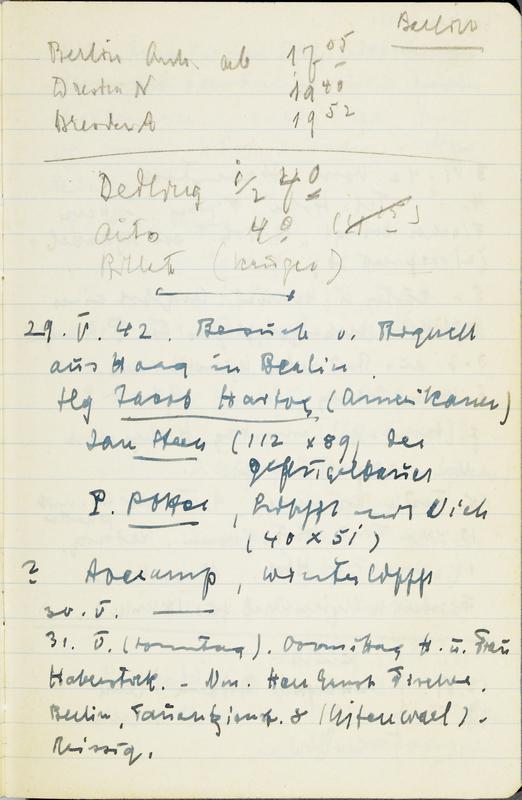 Berlin
Berlin Anh. ab 17 05
Dresden N 19 40
Dresden A 19 52
Dedling 1/2 4 0
Auto 4 0 (11 )
Billett (Krüger)
29. V. 42. Besuch v.
aus Haag in Berlin.
Slg Jacob Hartog (Amerikaner)
Jan Steen (112 x 89, der
geflügelbauer
P. Potter, mit Vieh
(40 x 51)
? Avercamp, winterldschft
30. V. —
31. V. (Sonntag). Vormittag H. u. Frau
Haberstock. - Nm. Herr Ernst Fischer,
Berlin, Tauentzienstr. 8 (Uytenwael) -
Rissig.